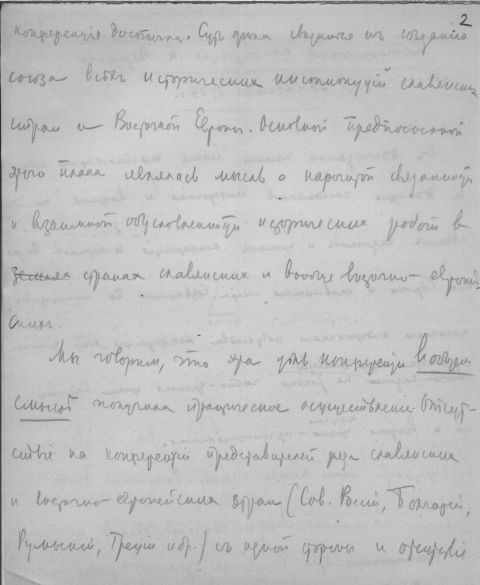 2
конференція достигла. Суть дѣла сводится къ созданію
союза всѣхъ историческихъ институцій славянскихъ
странъ и Восточной Европы. Основной предпосылкой
этого плана являлась мысль о нарочитой связанности
и взаимной обусловленности историческихъ работъ в
земляхъ странахъ славянскихъ и вообще восточно-европей-
скихъ.
Мы говоримъ, что эта цѣль конференціи въ общемъ
смыслѣ получила практическое осуществленіе. Отсут-
ствіе на конференціи представителей ряда славянскихъ
и восточно-европейскихъ странъ (Сов. Россіи, Болгаріи,
Румыніи, Греціи и др.) съ одной стороны и отсутствіе